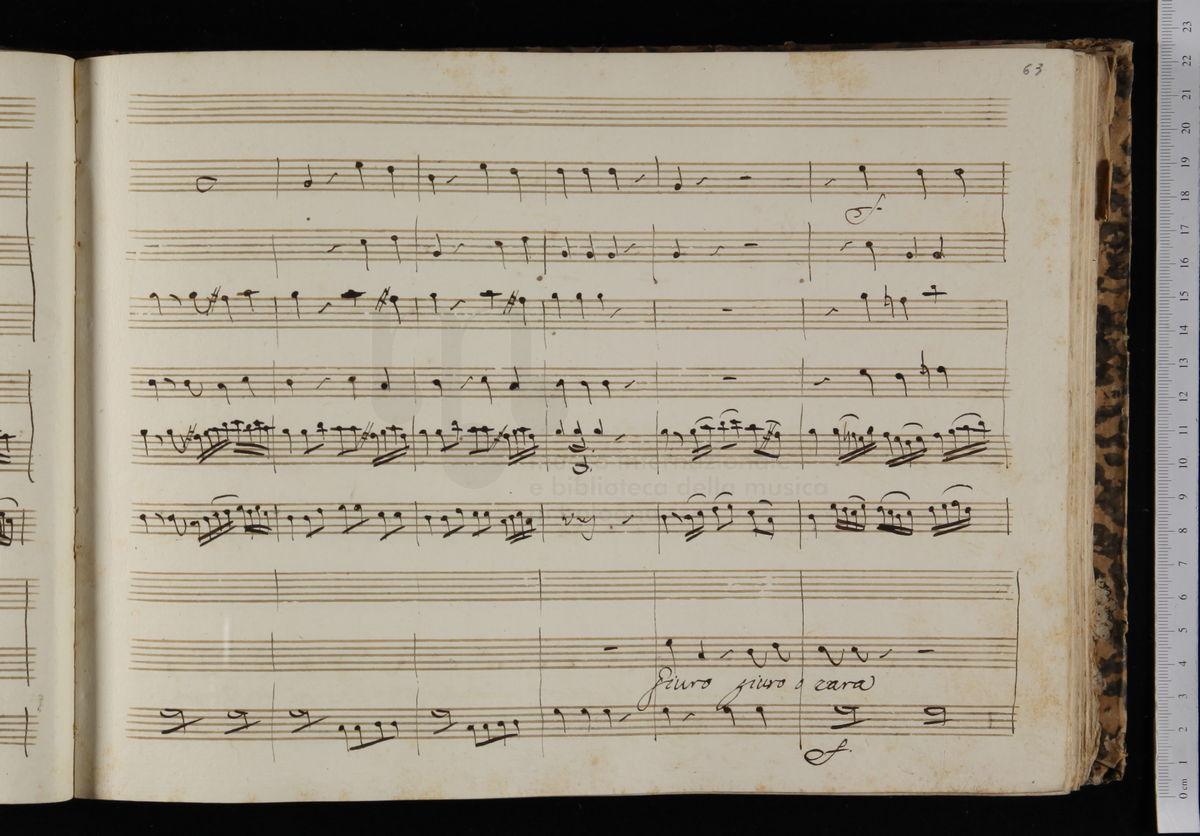 63
f.
Giuro giuro o cara
f.
museo internazionale
e biblioteca della musica
0 cm 1 2 3 4 5 6 7 8 9 10 11 12 13 14 15 16 17 18 19 20 21 22 23